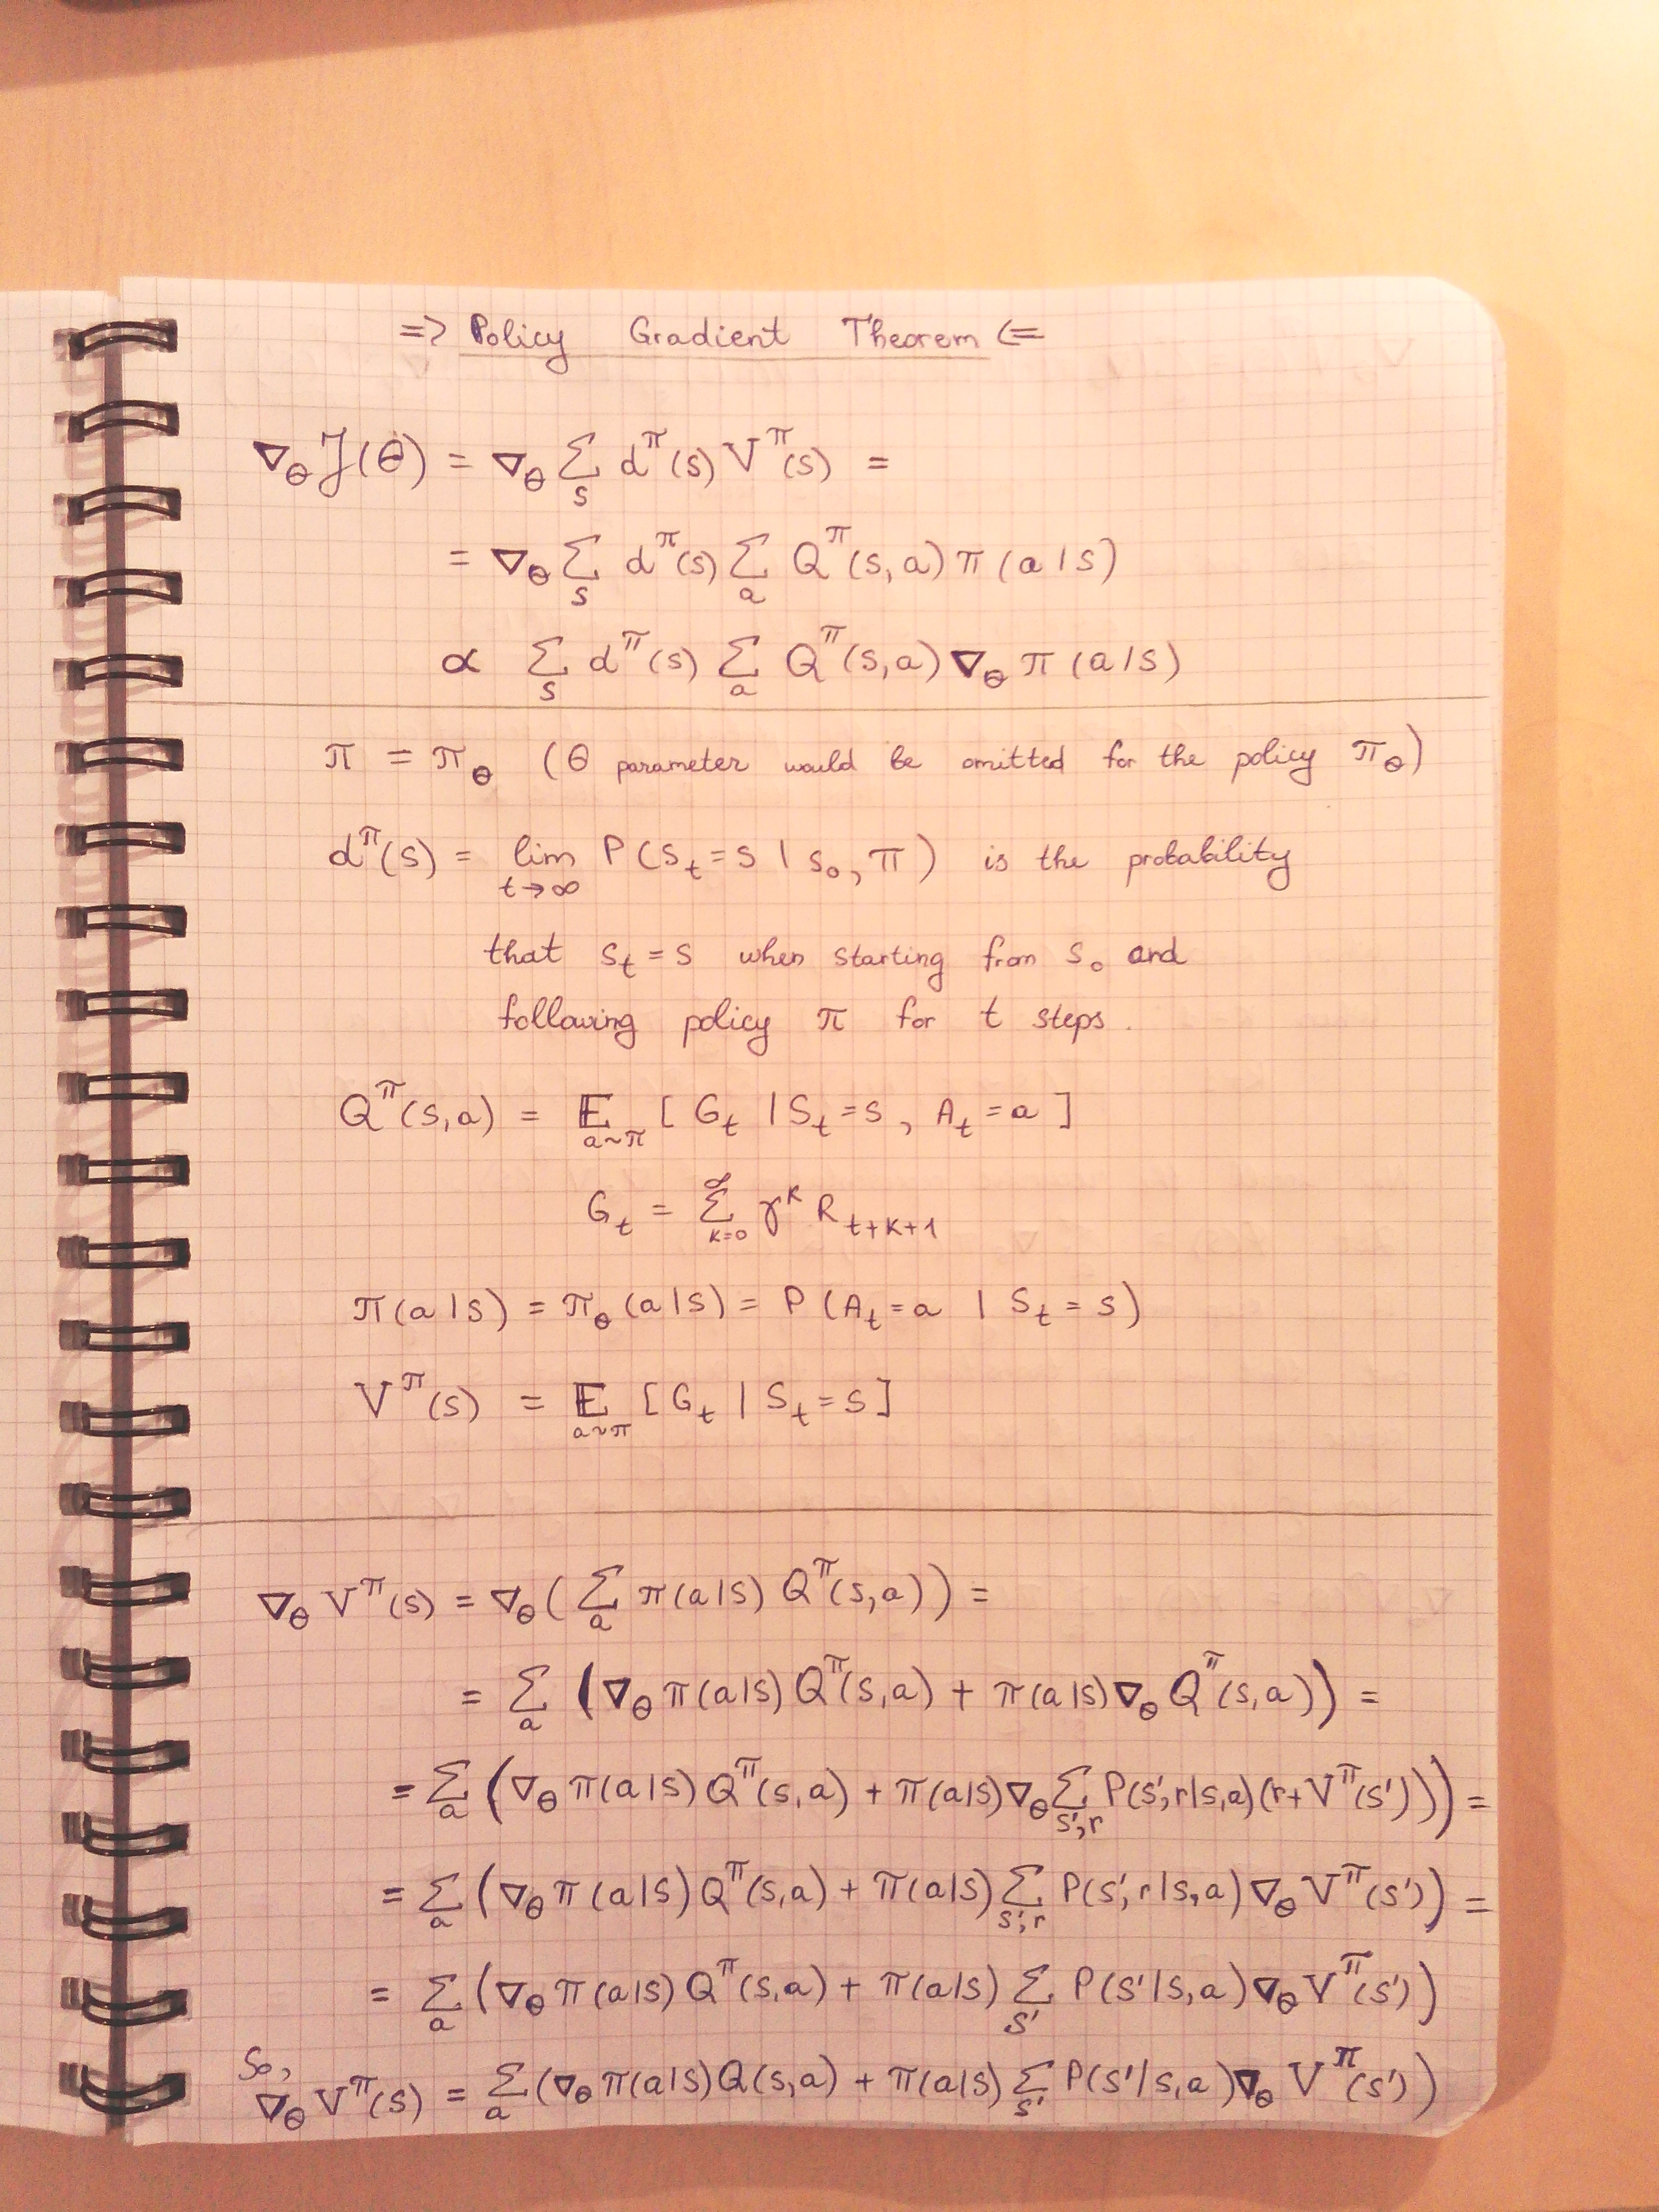 => Policy Gradient Theorem <=
∇_θ J(θ) = ∇_θ Σ_s d^π(s) V^π(s) =
= ∇_θ Σ_s d^π(s) Σ_a Q^π(s,a) π(a|s)
∝ Σ_s d^π(s) Σ_a Q^π(s,a) ∇_θ π(a|s)
π = π_θ (θ parameter would be omitted for the policy π_θ)
d^π(s) = lim_{t→∞} P(s_t = s | s_0, π) is the probability
that s_t = s when starting from s_0 and
following policy π for t steps.
Q^π(s,a) = E_{a~π} [G_t | S_t = s, A_t = a]
G_t = Σ_{k=0}^∞ γ^k R_{t+k+1}
π(a|s) = π_θ(a|s) = P(A_t = a | S_t = s)
V^π(s) = E_{a~π} [G_t | S_t = s]
∇_θ V^π(s) = ∇_θ (Σ_a π(a|s) Q^π(s,a)) =
= Σ_a (∇_θ π(a|s) Q^π(s,a) + π(a|s) ∇_θ Q^π(s,a)) =
= Σ_a (∇_θ π(a|s) Q^π(s,a) + π(a|s) ∇_θ Σ_{s',r} P(s',r|s,a)(r + V^π(s'))) =
= Σ_a (∇_θ π(a|s) Q^π(s,a) + π(a|s) Σ_{s',r} P(s',r|s,a) ∇_θ V^π(s')) =
= Σ_a (∇_θ π(a|s) Q^π(s,a) + π(a|s) Σ_{s'} P(s'|s,a) ∇_θ V^π(s'))
So,
∇_θ V^π(s) = Σ_a (∇_θ π(a|s) Q(s,a) + π(a|s) Σ_{s'} P(s'|s,a) ∇_θ V^π(s'))